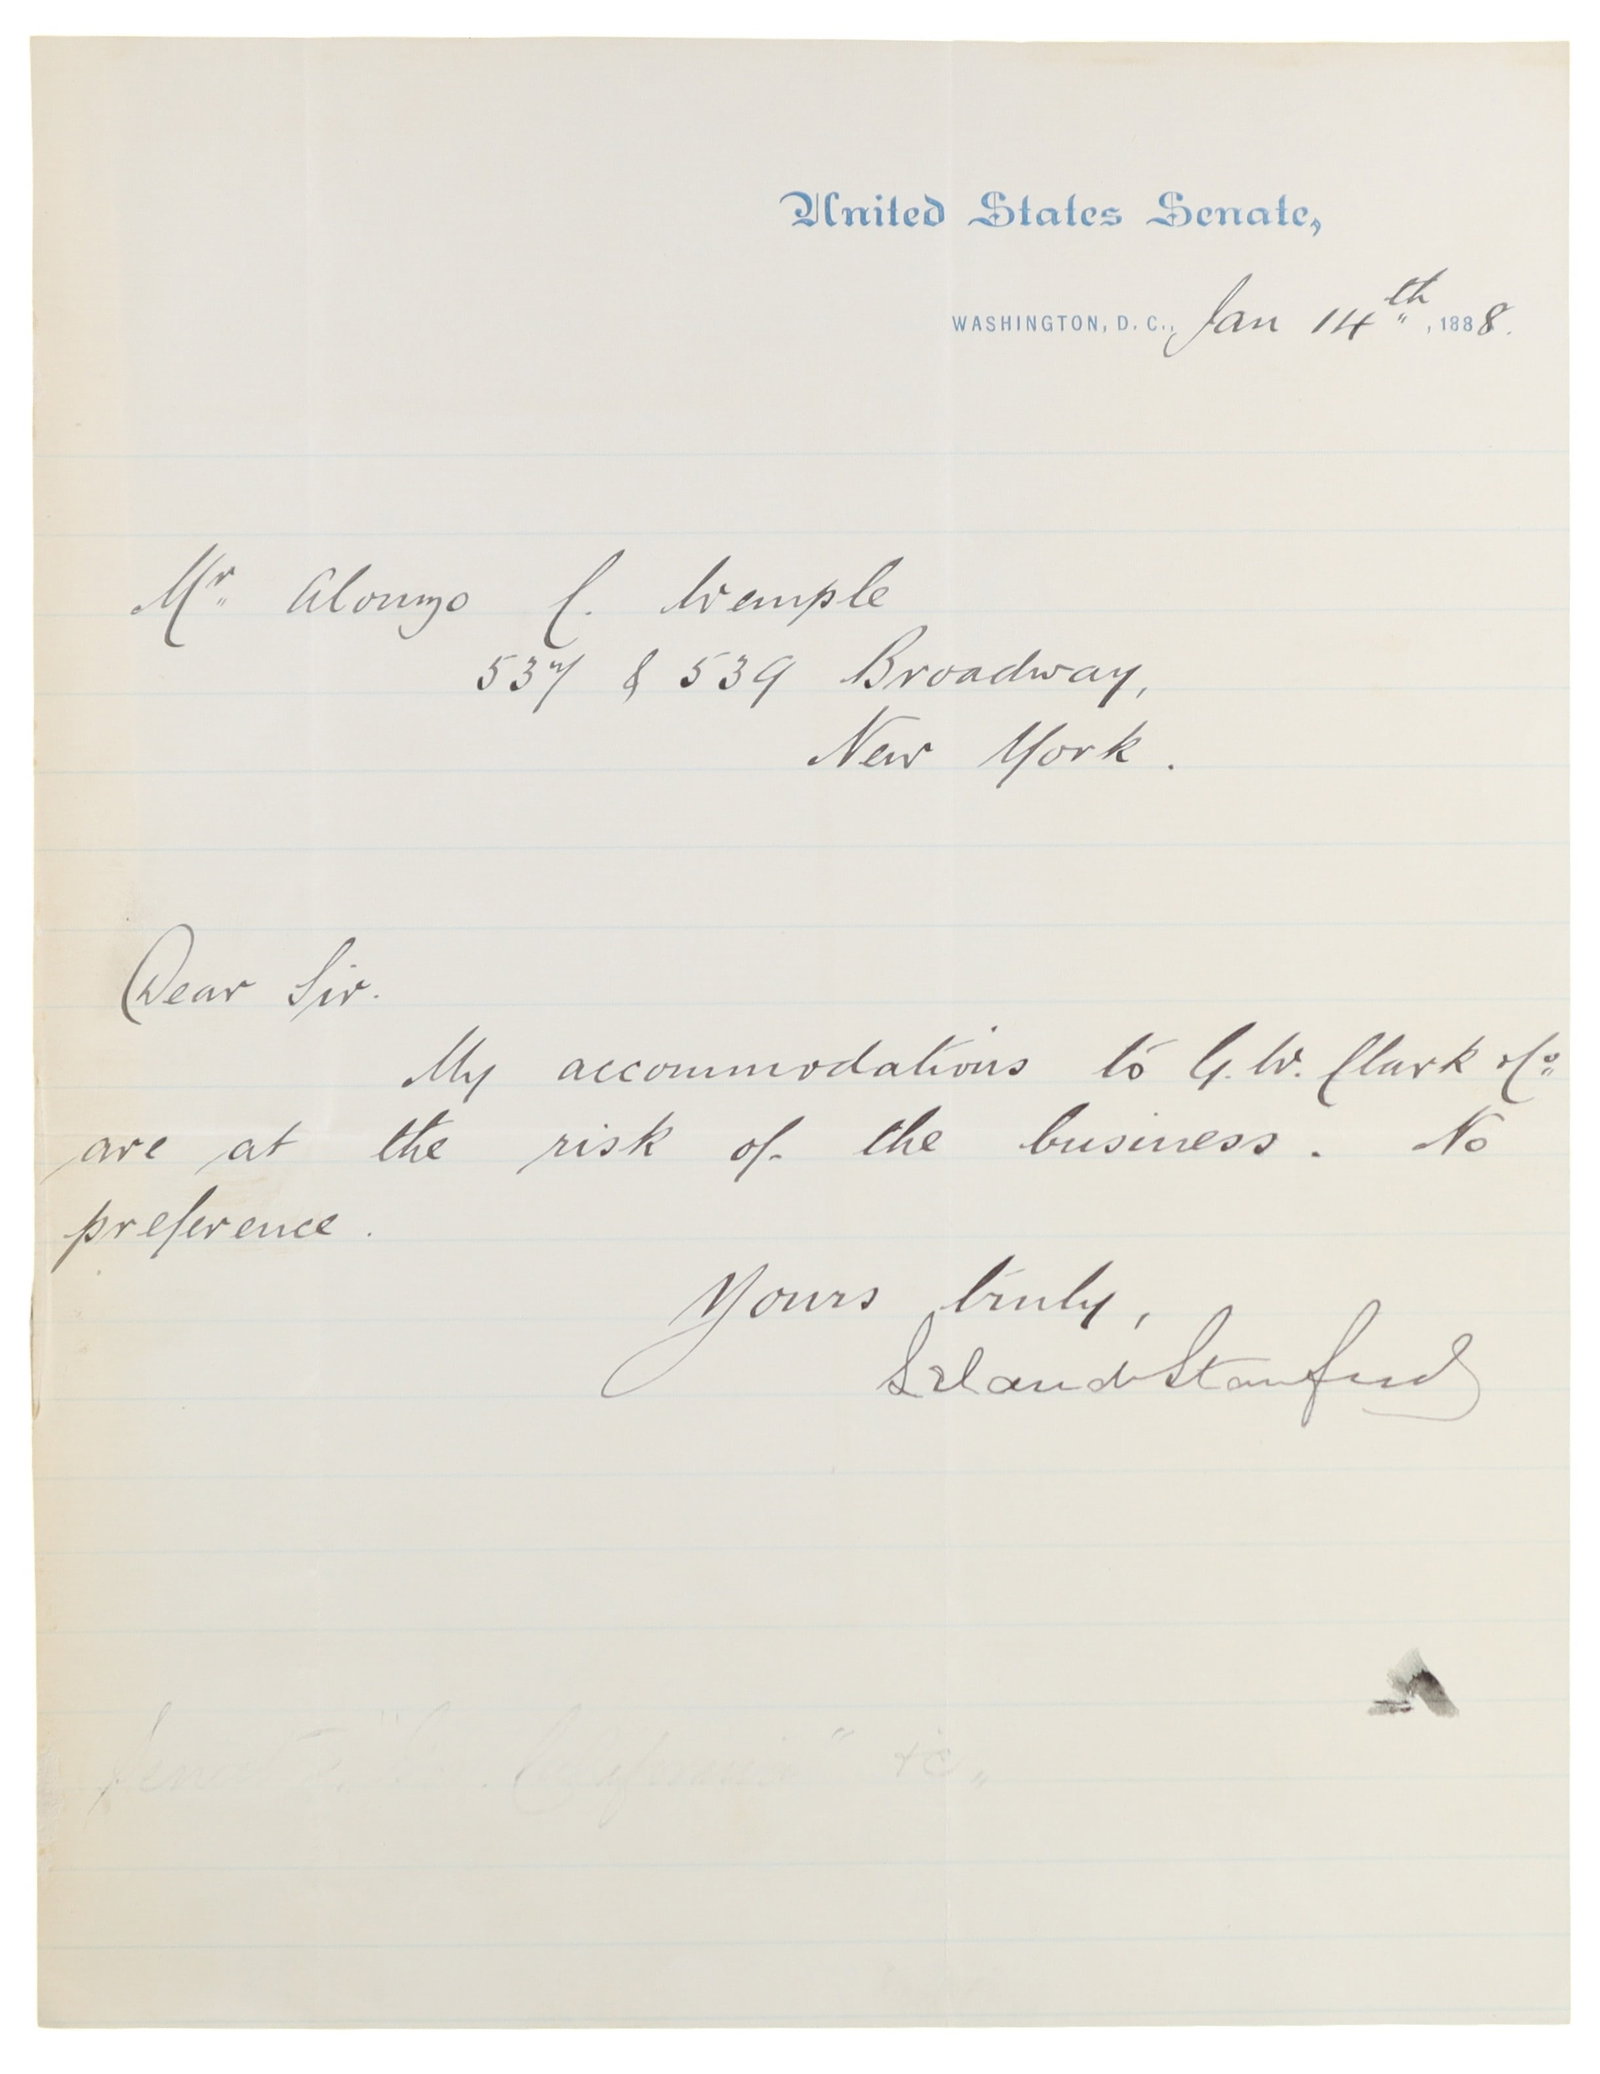 United States Senate,
WASHINGTON, D. C., Jan 14th, 1888.
Mr. Alonzo C. Wemple
537 & 539 Broadway,
New York.
Dear Sir.
My accommodations to G. W. Clark & Co.
are at the risk of the business. No
preference.
Yours truly,
Leland Stanford
California" &c.